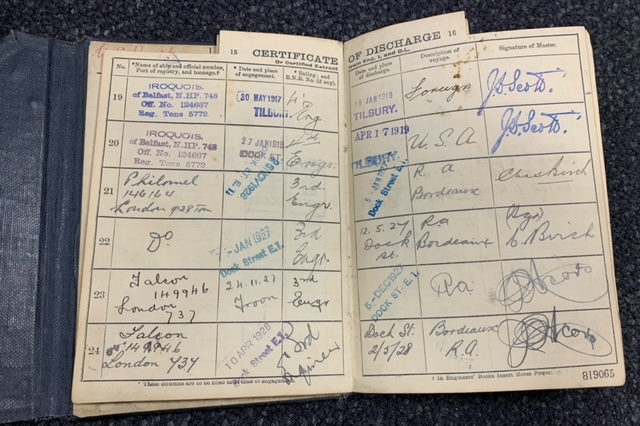 15 CERTIFICATE
Or Certified Extract
OF DISCHARGE 16
from Eng. 1, and O.L.
No.
*Name of ship and official number,
Port of registry, and tonnage.†
*Date and place
of engagement.
*Rating; and
R.N.R. No. (if any).
Date and place
of discharge.
Description of
voyage.
Signature of Master.
19
IROQUOIS.
of Belfast, N.HP. 748
Off. No. 124667
Reg. Tons 5772
30 MAY 1917
TILBURY.
4th
Eng
JAN 1919
TILBURY.
Foreign
J.S. Scott.
20
IROQUOIS.
of Belfast, N.HP. 748
Off. No. 124667
Reg. Tons 5772
27 JAN 1919
4th
Engr.
APR 17 1919
TILBURY.
U.S.A.
J.S. Scott.
21
Philomel
146164
London
3rd
Engr.
Dock Street E.1.
R.a
Bordeaux
22
Do
JAN 1927
Dock Street E.1.
3rd
Engr.
12.5.27
Dock
St.
R.a
Bordeaux
Birch
23
Falcon
149946
London
737
24.11.27
Troon
3rd
Engr
5-DEC 1927
DOCK ST. E.1.
Ra
24
Falcon
149946
London 737
10 APR 1928
Dock Street E.1.
3rd
Engineer
Dock St.
2/5/28
Bordeaux
R.A.
* These columns are to be filled in at time of engagement.
† In Engineers' Books Insert Horse Power.
819065